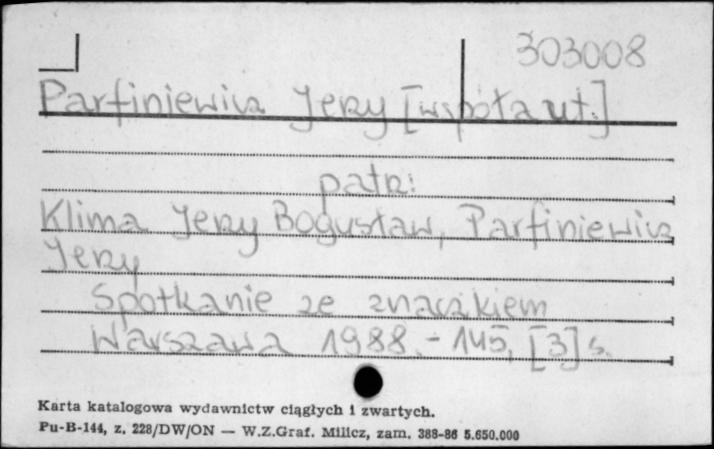 303008
Parfiniewicz Jerzy [współaut.]
patrz:
Klima Jerzy Bogusław, Parfiniewicz
Jerzy
Spotkanie ze znaczkiem
Warszawa 1988. - 145, [3] s.
Karta katalogowa wydawnictw ciągłych i zwartych.
Pu-B-144, z. 228/DW/ON — W.Z.Graf. Milicz, zam. 388-86 5.650.000